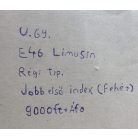 U.Gy.
E46 Limusin
Régi Tip.
Jobb első index (Fehér)
9000ft+Áfa